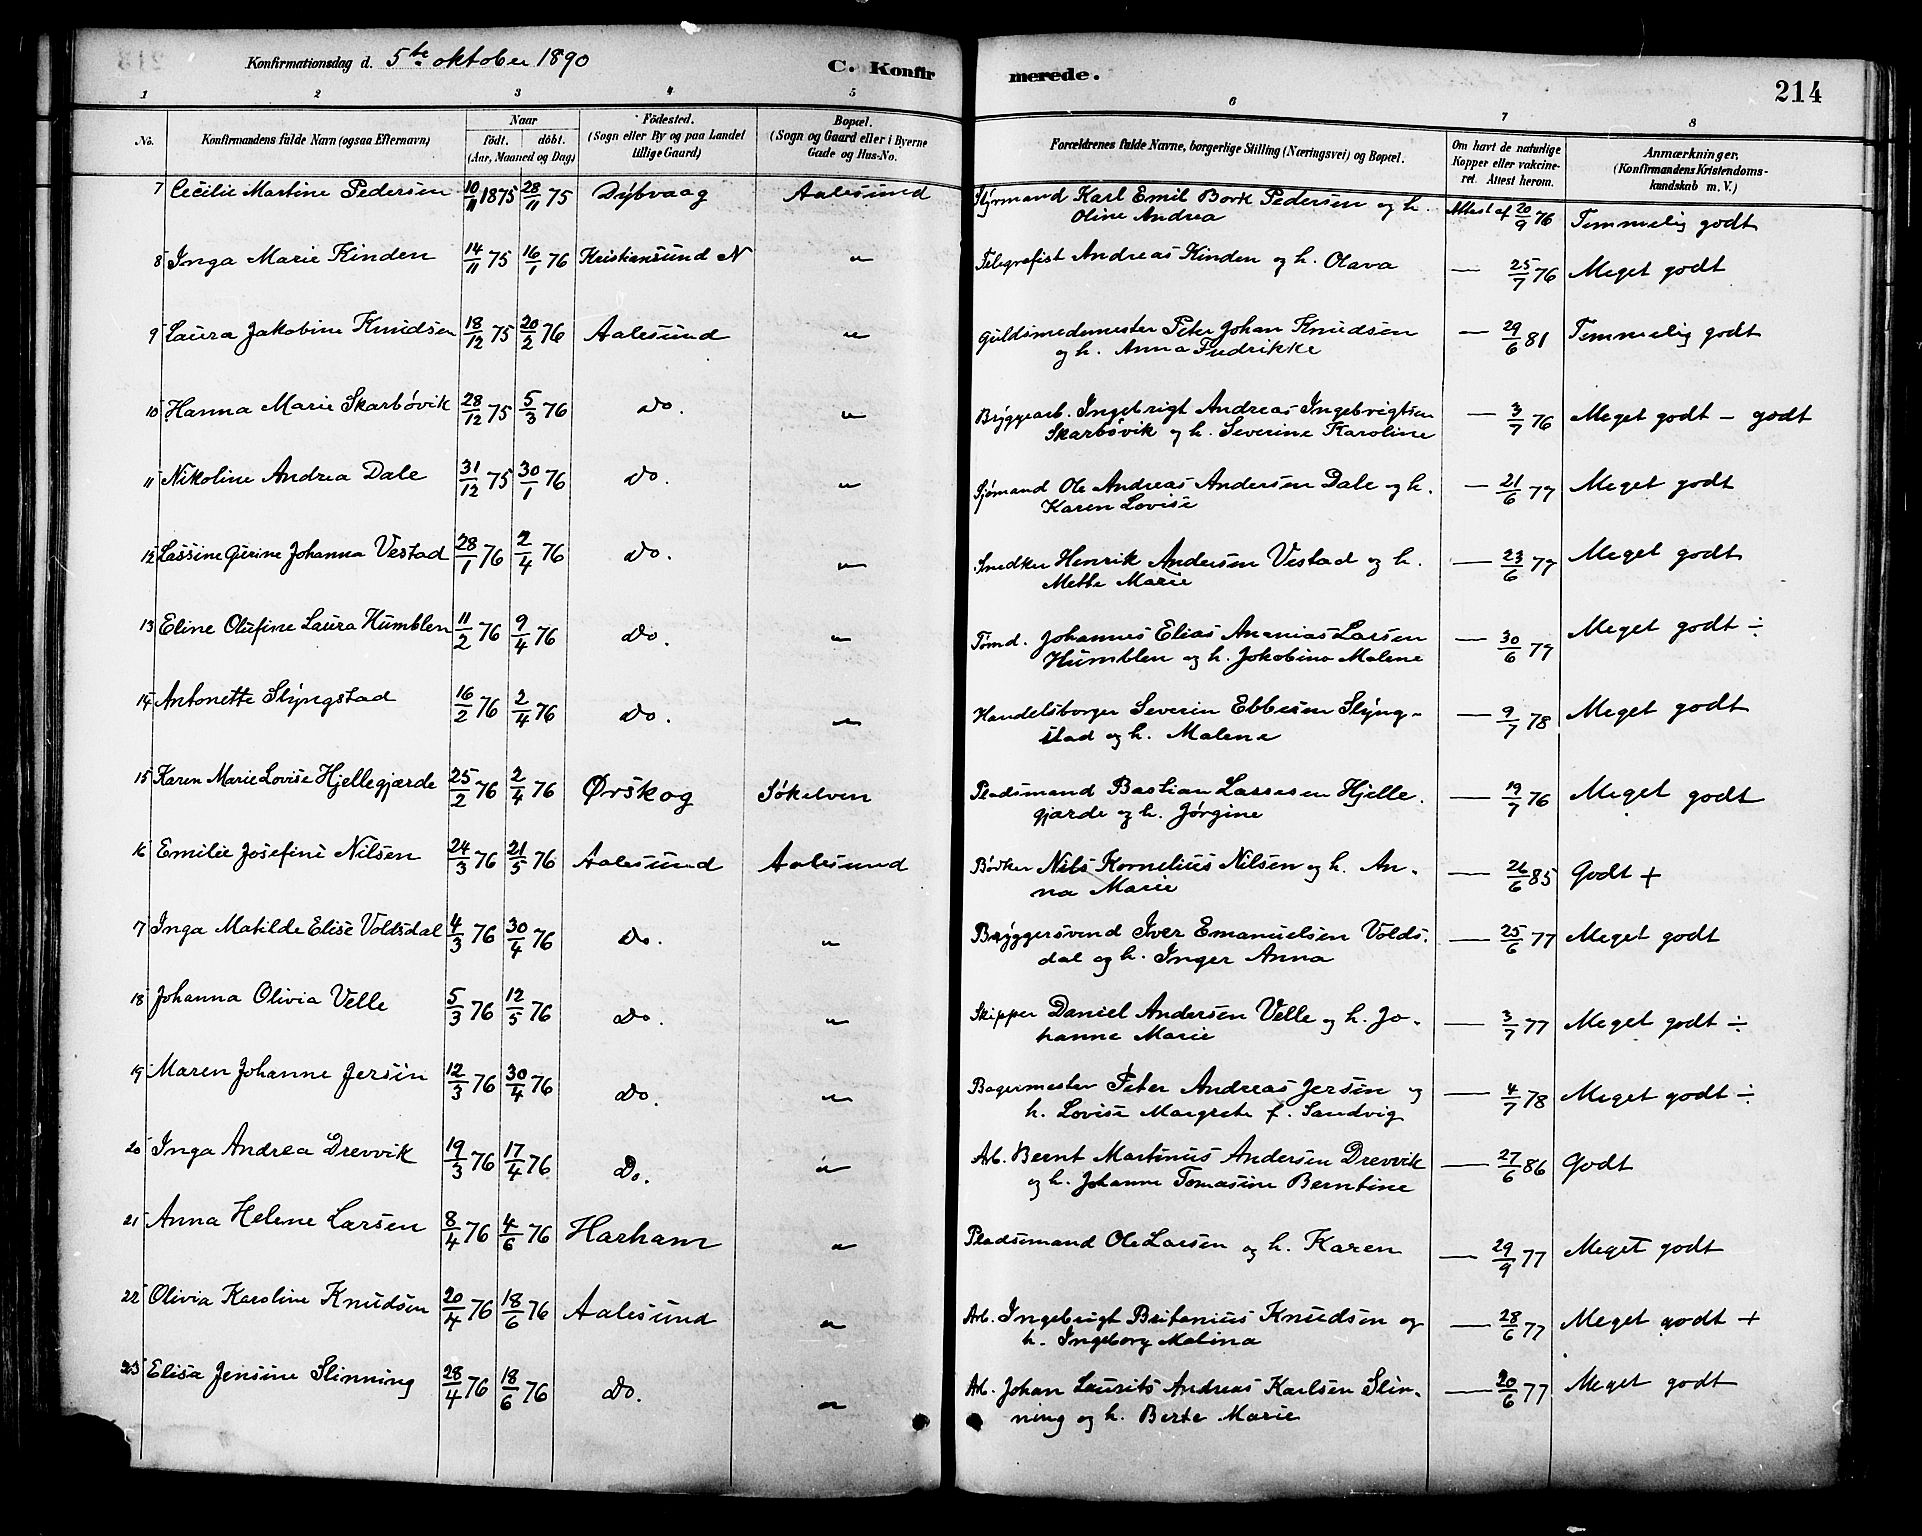 Konfirmationsdag d. 5te oktober 1890
C. Konfirmerede.
214
1 2 3 4 5 6 7 8
No. Konfirmandens fulde Navn (ogsaa Efternavn) Naar födt. döbt. (Aar, Maaned og Dag) Födested. (Sogn eller By og paa Landet tillige Gaard) Bopæl. (Sogn og Gaard eller i Byerne Gade og Hus-No. Forældrenes fulde Navne, borgerlige Stilling (Næringsvei) og Bopæl. Om havt de naturlige Kopper eller vakcineret. Attest herom. Anmærkninger. (Konfirmandens Kristendomskundskab m. V.)
7 Cecilie Martine Pedersen 10/11 1875 28/11 75 Dÿbvaag Aalesund Stÿrmand Karl Emil Bork Pedersen og h. Attest af 20/9 76 Temmelig godt
Oline Andrea
8 Inga Marie Kinden 14/11 75 16/1 76 Kristiansund N " Telegrafist Andreas Kinden og h. Olava — 25/7 76 Meget godt
9 Laura Jakobine Knudsen 18/12 75 20/2 76 Aalesund " Guldsmedemester Peter Johan Knudsen — 29/6 81 Temmelig godt
og h. Anna Fredrikke
10 Hanna Marie Skarbövik 28/12 75 5/3 76 Do. " Brÿggearb. Ingebrigt Andreas Ingebrigtsen — 3/7 76 Meget godt - godt
Skarbövik og h. Severine Karoline
11 Nikoline Andrea Dale 31/12 75 30/1 76 Do. " Sjömand Ole Andreas Andersen Dale og h. — 21/6 77 Meget godt
Karen Lovise
12 Lassine Gurine Johanna Vestad 28/1 76 2/4 76 Do. " Snedker Henrik Andersen Vestad og h. — 23/6 77 Meget godt
Mette Marie
13 Eline Olufine Laura Humblen 11/2 76 9/4 76 Do. " Tömd. Johannes Elias Ananias Larsen — 30/6 77 Meget godt ÷
Humblen og h. Jakobine Malene
14 Antonette Slÿngstad 16/2 76 2/4 76 Do. " Handelsborger Severin Ebbesen Slÿng- — 9/7 78 Meget godt
stad og h. Malene
15 Karen Marie Lovise Hjellegjærde 25/2 76 2/4 76 Ørskog Sökelven Pladsmand Bastian Lassesen Hjelle- — 19/7 76 Meget godt
gjærde og h. Jörgine
16 Emilie Josefine Nilsen 24/3 76 21/5 76 Aalesund Aalesund Bödker Nils Kornelius Nilsen og h. An- — 26/6 85 Godt +
na Marie
7 Inga Matilde Elise Voldsdal 4/3 76 30/4 76 Do. " Brÿggersvend Iver Emanuelsen Volds- — 25/6 77 Meget godt
dal og h. Inger Anna
18 Johanna Olivia Velle 5/3 76 12/5 76 Do. " Skipper Daniel Andersen Velle og h. Jo- — 3/7 77 Meget godt ÷
hanne Marie
19 Maren Johanne Jersin 12/3 76 30/4 76 Do. " Bagermester Peter Andreas Jersin og — 4/7 78 Meget godt ÷
h. Lovise Margrete f. Sandvig
20 Inga Andrea Drevvik 19/3 76 17/4 76 Do. " Arb. Bernt Martinus Andersen Drevvik — 27/6 86 Godt
og h. Johanne Tomasine Berntine
21 Anna Helene Larsen 8/4 76 4/6 76 Harham " Pladsemand Ole Larsen og h. Karen — 29/9 77 Meget godt
22 Olivia Karoline Knudsen 20/4 76 18/6 76 Aalesund " Arb. Ingebrigt Britanius Knudsen og — 28/6 77 Meget godt +
h. Ingeborg Malina
23 Elisa Jensine Slinning 28/4 76 18/6 76 Do. " Arb. Johan Laurits Andreas Karlsen Slin- — 20/6 77 Meget godt
ning og h. Berte Marie